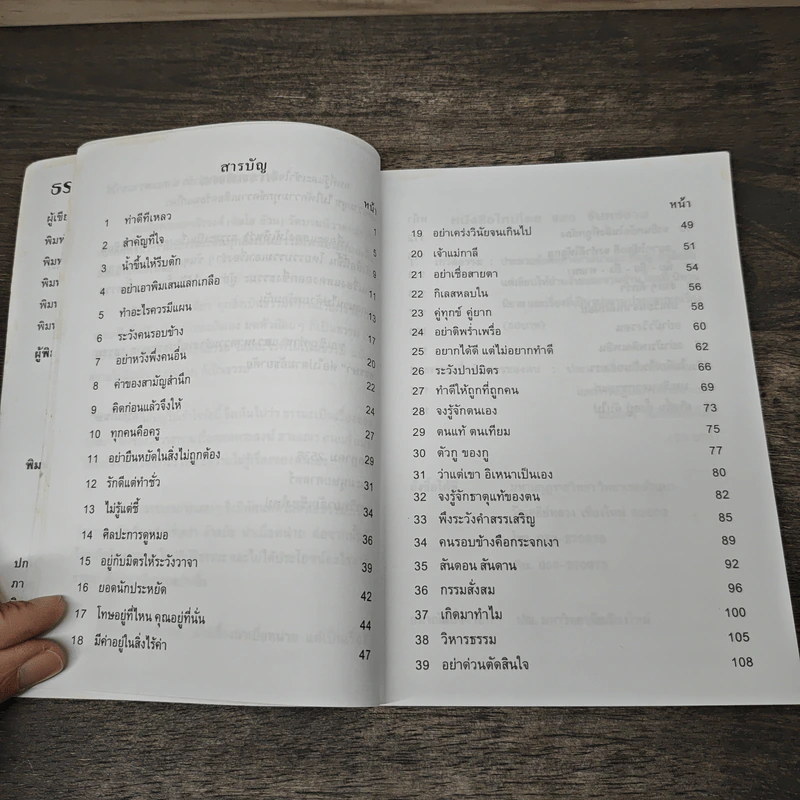 ธร
ผู้เขีย
พิมพ
พิม
พิมพ
พิม
พิม
ผู้พิม
พิม
ปก
ภา
สารบัญ
หน้า
1 ทำดีทีเหลว 1
2 สำคัญที่ใจ 5
3 น้ำขึ้นให้รีบตัก 9
4 อย่าเอาพิมเสนแลกเกลือ 11
5 ทำอะไรควรมีแผน 13
6 ระวังคนรอบข้าง 17
7 อย่าหวังพึ่งคนอื่น 20
8 ค่าของสามัญสำนึก 22
9 คิดก่อนแล้วจึงให้ 24
10 ทุกคนคือครู 27
11 อย่ายืนหยัดในสิ่งไม่ถูกต้อง 29
12 รักดีแต่ทำชั่ว 31
13 ไม่รู้แต่ชี้ 34
14 ศิลปะการดูหมอ 36
15 อยู่กับมิตรให้ระวังวาจา 39
16 ยอดนักประหยัด 42
17 โทษอยู่ที่ไหน คุณอยู่ที่นั่น 44
18 มีค่าอยู่ในสิ่งไร้ค่า 47
หน้า
19 อย่าเคร่งวินัยจนเกินไป 49
20 เจ้าแม่กาลี 51
21 อย่าเชื่อสายตา 54
22 กิเลสหลบใน 56
23 คู่ทุกข์ คู่ยาก 58
24 อย่าติพร่ำเพรื่อ 60
25 อยากได้ดี แต่ไม่อยากทำดี 62
26 ระวังปาปมิตร 66
27 ทำดีให้ถูกที่ถูกคน 69
28 จงรู้จักตนเอง 73
29 ตนแท้ ตนเทียม 75
30 ตัวกู ของกู 77
31 ว่าแต่เขา อิเหนาเป็นเอง 80
32 จงรู้จักธาตุแท้ของตน 82
33 พึงระวังคำสรรเสริญ 85
34 คนรอบข้างคือกระจกเงา 89
35 สันดอน สันดาน 92
36 กรรมสั่งสม 96
37 เกิดมาทำไม 100
38 วิหารธรรม 105
39 อย่าด่วนตัดสินใจ 108